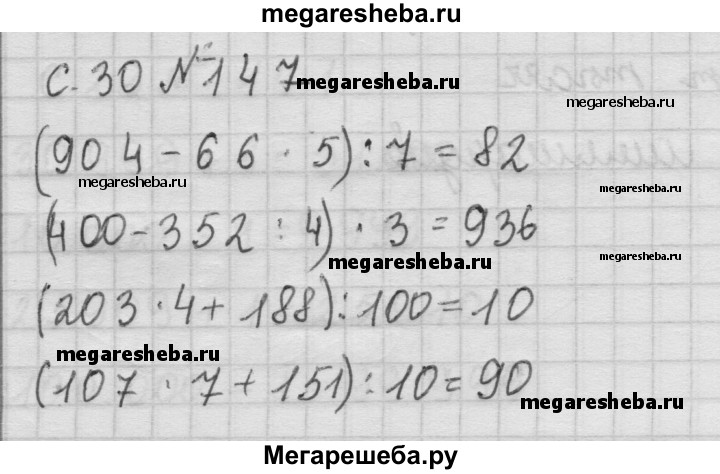 megaresheba.ru
с. 30 №147 megaresheba.ru
megaresheba.ru
(904 - 66 · 5) : 7 = 82
megaresheba.ru megaresheba.ru
(400 - 352 : 4) · 3 = 936
megaresheba.ru megaresheba.ru
(203 · 4 + 188) : 100 = 10
megaresheba.ru
(107 · 7 + 151) : 10 = 90
megaresheba.ru
Мегарешеба.ру